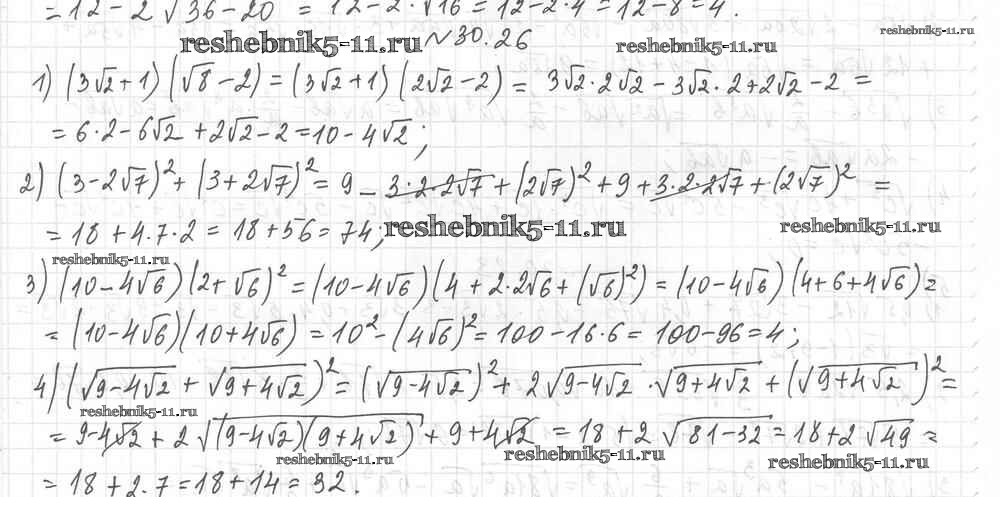 = 12 - 2√36-20 = 12-2·√16 = 12-2·4 = 12-8 = 4.
reshebnik5-11.ru №30.26 reshebnik5-11.ru reshebnik5-11.ru
1) (3√2+1)(√8-2) = (3√2+1)(2√2-2) = 3√2·2√2 - 3√2·2+2√2-2 =
= 6·2-6√2+2√2-2=10-4√2;
2) (3-2√7)²+(3+2√7)²= 9 - 3·2·2√7 + (2√7)²+9+3·2·2√7+(2√7)² =
= 18+4·7·2 = 18+56=74; reshebnik5-11.ru reshebnik5-11.ru
reshebnik5-11.ru
3) (10-4√6)(2+√6)²=(10-4√6)(4+2·2√6+(√6)²)=(10-4√6)(4+6+4√6)=
= (10-4√6)(10+4√6) = 10²-(4√6)²=100-16·6=100-96=4;
4) (√9-4√2 + √9+4√2)²=(√9-4√2)²+2√9-4√2·√9+4√2+(√9+4√2)²=
reshebnik5-11.ru
= 9-4√2+2√(9-4√2)(9+4√2)+9+4√2 = 18+2√81-32=18+2√49=
reshebnik5-11.ru reshebnik5-11.ru reshebnik5-11.ru
= 18+2·7=18+14=32.